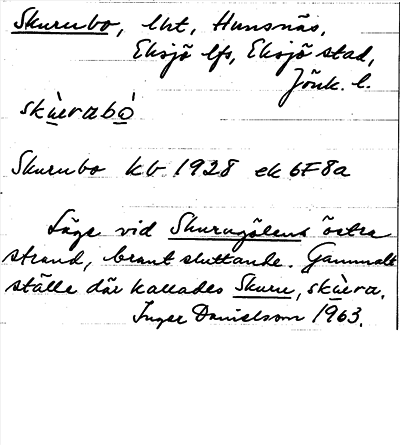 Skurubo, lht, Hunsnäs,
Eksjö lfs, Eksjö stad,
Jönk. l.
skùrabó
Skurubo kb 1928 ek 6F8a
Läge vid Skurugölens östra
strand, brant sluttande. Gammalt
ställe där kallades Skuru, skùrva.
Inger Danielsson 1963.